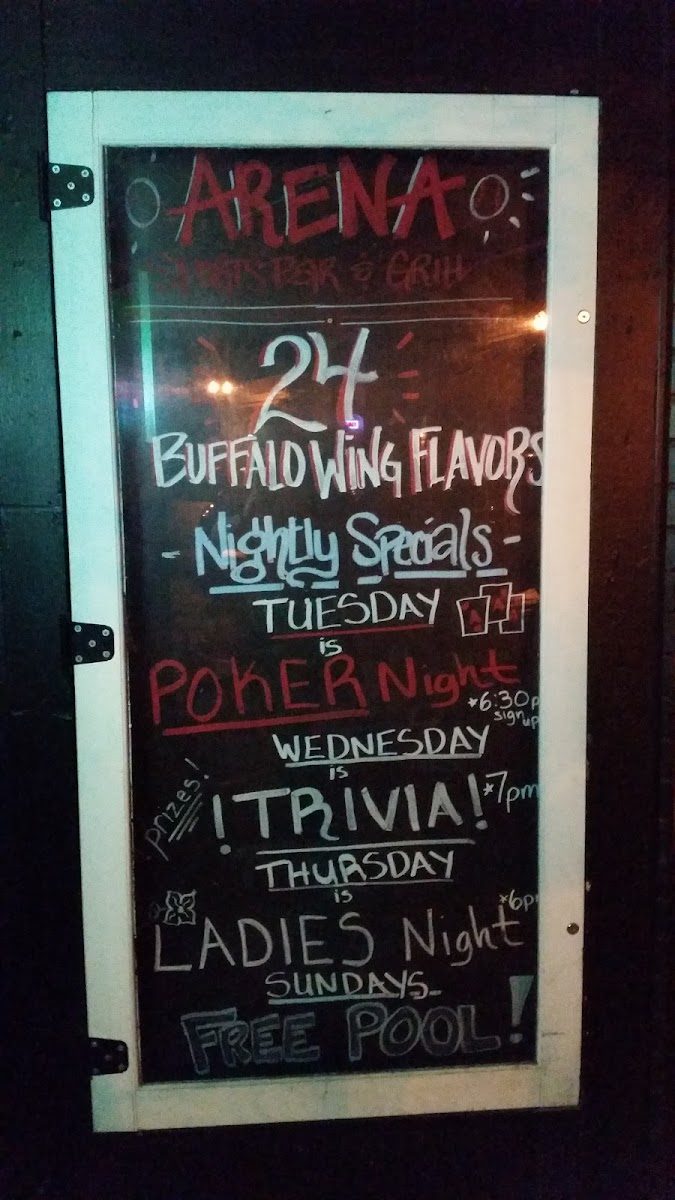 ARENA
SPORTS BAR & GRILL
24
BUFFALO WING FLAVORS
- Nightly Specials -
TUESDAY
A A A
is
POKER Night
*6:30p
sign up
WEDNESDAY
is
prizes!
! TRIVIA! *7pm
THURSDAY
is
*6p
LADIES Night
SUNDAYS
FREE POOL!